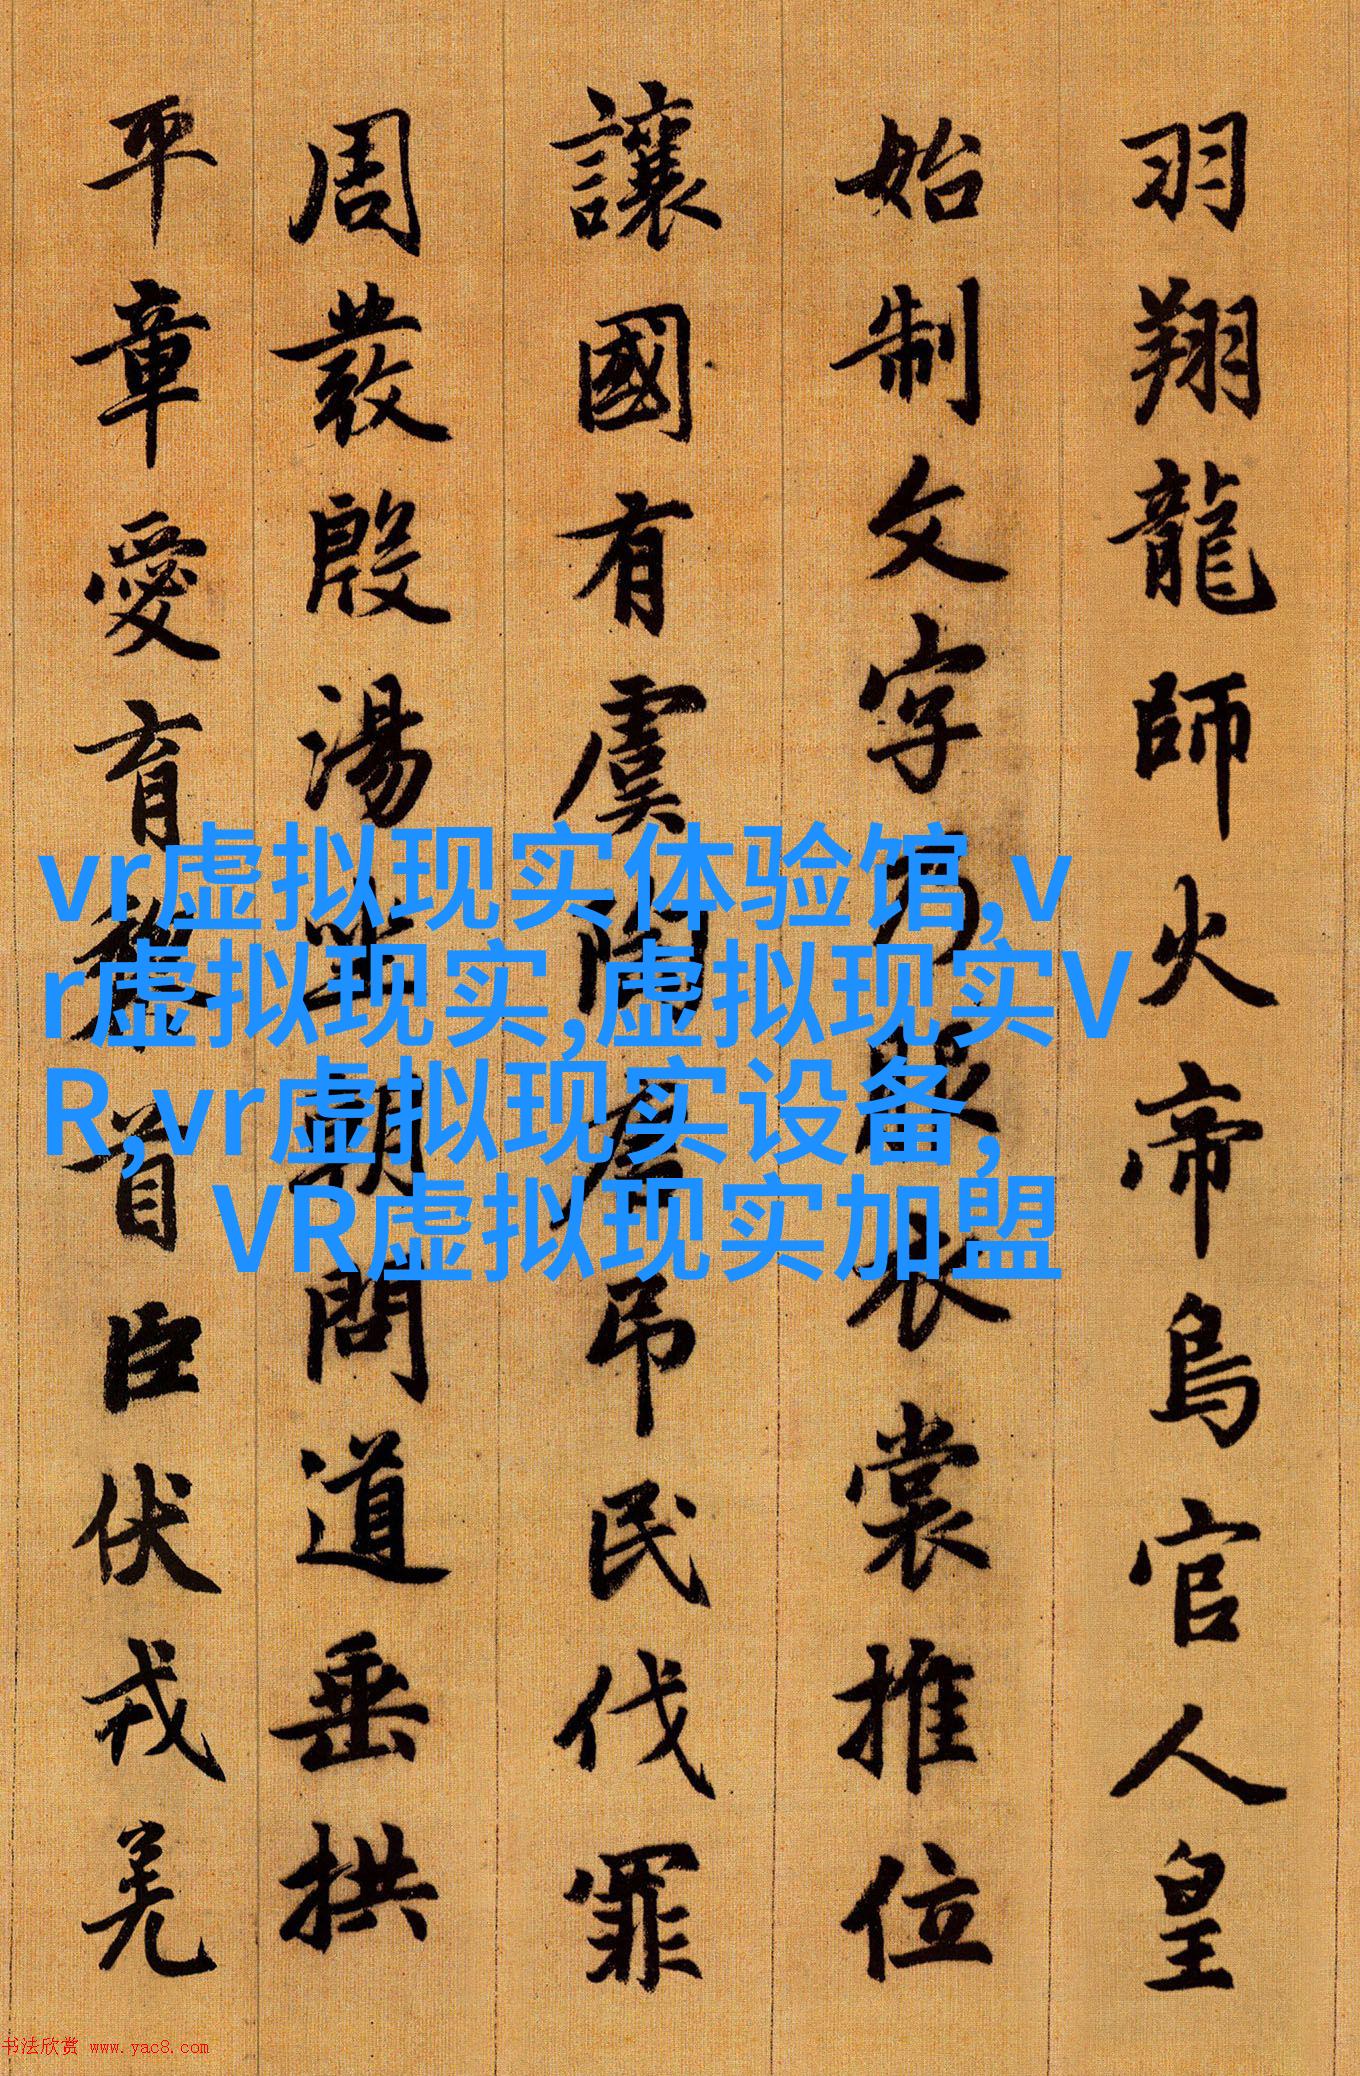 羽翔龍師火帝鳥官人皇
始制文字乃服衣裳推位
讓國有虞陶唐吊民伐罪
周發殷湯坐朝問道垂拱
平章愛育黎首臣伏戎羌
vr虚拟现实体验馆,v
r虚拟现实,虚拟现实V
R,vr虚拟现实设备,
VR虚拟现实加盟
书法欣赏 www.yac8.com